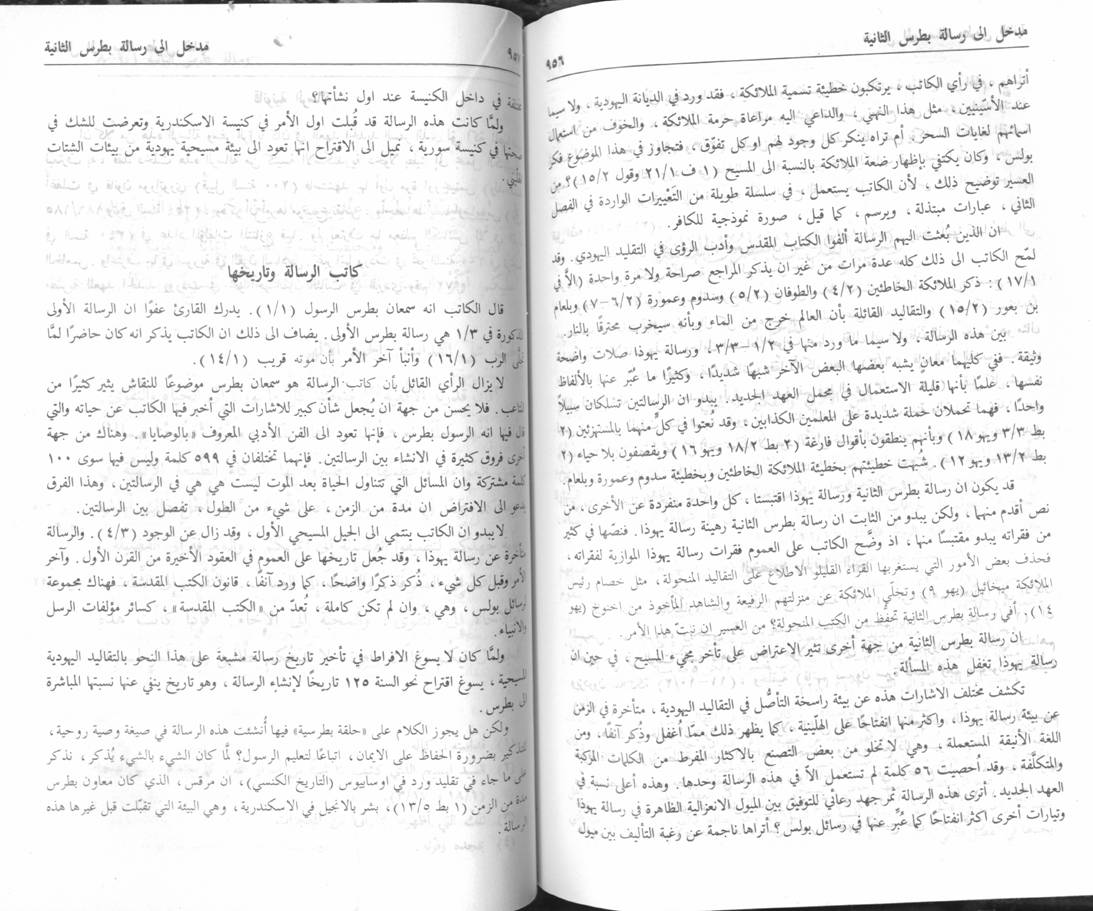 مدخل الى رسالة بطرس الثانية
٩٥٦
أتراهم ، في رأي الكاتب ، يرتكبون خطيئة تسمية الملائكة ، فقد ورد في الديانة اليهودية ، ولا سيما
عند الأسّينيين ، مثل هذا النهي ، والداعي اليه مراعاة حرمة الملائكة ، والخوف من استعمال
اسمائهم لغايات السحر، أم تراه ينكر كل وجود لهم او كل تفوّق ، فتجاوز في هذا الموضوع فكر
بولس ، وكان يكتفي بإظهار ضعة الملائكة بالنسبة الى المسيح (١ ف ٢١/١ وقول ١٥/٢)؟ من
العسير توضيح ذلك ، لأن الكاتب يستعمل ، في سلسلة طويلة من التعييرات الواردة في الفصل
الثاني ، عبارات مبتذلة ، ويرسم ، كما قيل ، صورة نموذجية للكافر.
ان الذين بُعثت اليهم الرسالة ألفوا الكتاب المقدس وأدب الرؤى في التقليد اليهودي. وقد
لمّح الكاتب الى ذلك كله عدة مرات من غير ان يذكر المراجع صراحة ولا مرة واحدة (الاّ في
١٧/١) : ذكر الملائكة الخاطئين (٤/٢) والطوفان (٥/٢) وسدوم وعمورة (٦/٢–٧) وبلعام
بن بعور (١٥/٢) والتقاليد القائلة بأن العالم خرج من الماء وبأنه سيخرب محترقًا بالنار.
بين هذه الرسالة ، ولا سيما ما ورد منها في ١/٢–٣/٣ ، ورسالة يهوذا صلات واضحة
وثيقة . ففي كليهما معانٍ يشبه بعضها البعض الآخر شبهًا شديدًا ، وكثيرًا ما عُبّر عنها بالألفاظ
نفسها ، علمًا بأنها قليلة الاستعمال في مجمل العهد الجديد. يبدو ان الرسالتين تسلكان سبيلاً
واحدًا ، فهما تحملان حملة شديدة على المعلمين الكذابين ، وقد نُعتوا في كلٍّ منهما بالمستهزئين (٢
بط ٣/٣ ويهو ١٨) وبأنهم ينطقون بأقوال فارغة (٢ بط ١٨/٢ ويهو ١٦) ويقصفون بلا حياء (٢
بط ١٣/٢ ويهو ١٢) . شُبهت خطيئتهم بخطيئة الملائكة الخاطئين وبخطيئة سدوم وعمورة وبلعام.
قد يكون ان رسالة بطرس الثانية ورسالة يهوذا اقتبستا ، كل واحدة متفردة عن الأخرى ، من
نص أقدم منهما ، ولكن يبدو من الثابت ان رسالة بطرس الثانية رهينة رسالة يهوذا . فنصّها في كثير
من فقراته يبدو مقتبسًا منها ، اذ وضّح الكاتب على العموم فقرات رسالة يهوذا الموازية لفقراته ،
فحذف بعض الأمور التي يستغربها القراء القليلو الاطلاع على التقاليد المنحولة ، مثل خصام رئيس
الملائكة ميخائيل (يهو ٩) وتخلّي الملائكة عن منزلتهم الرفيعة والشاهد المأخوذ من اخنوخ (يهو
١٤): أفي رسالة بطرس الثانية تحفظ من الكتب المنحولة؟ من العسير ان نبتّ هذا الأمر.
ان رسالة بطرس الثانية من جهة أخرى تثير الاعتراض على تأخر مجيء المسيح ، في حين ان
رسالة يهوذا تغفل هذه المسألة .
تكشف مختلف الاشارات هذه عن بيئة راسخة التأصُّل في التقاليد اليهودية ، متأخرة في الزمن
عن بيئة رسالة يهوذا ، واكثر منها انفتاحًا على الهلّينية ، كما يظهر ذلك ممّا أغفل وذُكر آنفًا، ومن
اللغة الأنيقة المستعملة ، وهي لا تخلو من بعض التصنع بالاكثار المفرط من الكلمات المركبة
والمتكلّفة ، وقد أُحصيت ٥٦ كلمة لم تستعمل الاّ في هذه الرسالة وحدها . وهذه أعلى نسبة في
العهد الجديد. أترى هذه الرسالة ثمر جهد رعائي للتوفيق بين الميول الانعزالية الظاهرة في رسالة يهوذا
وتيارات أخرى اكثر انفتاحًا كما عُبّر عنها في رسائل بولس ؟ أتراها ناجمة عن رغبة التأليف بين ميول
مدخل الى رسالة بطرس الثانية
٩٥٧
في داخل الكنيسة عند اول نشأتها؟
ولمّا كانت هذه الرسالة قد قُبلت اول الأمر في كنيسة الاسكندرية وتعرضت للشك في
صحتها في كنيسة سورية ، تميل الى الاقتراح انها تعود الى بيئة مسيحية يهودية من بيئات الشتات
كاتب الرسالة وتاريخها
قال الكاتب انه سمعان بطرس الرسول (١/١). يدرك القارئ عفوًا ان الرسالة الأولى
المذكورة في ١/٣ هي رسالة بطرس الأولى. يضاف الى ذلك ان الكاتب يذكر انه كان حاضرًا لمّا
تجلّى الرب (١٦/١) وأنبأ آخر الأمر بأن موته قريب (١٤/١).
لا يزال الرأي القائل بأن كاتب الرسالة هو سمعان بطرس موضوعًا للنقاش يثير كثيرًا من
المتاعب . فلا يحسن من جهة ان يُجعل شأن كبير للاشارات التي أخبر فيها الكاتب عن حياته والتي
قال فيها انه الرسول بطرس ، فإنها تعود الى الفن الأدبي المعروف «بالوصايا». وهناك من جهة
أخرى فروق كثيرة في الانشاء بين الرسالتين. فإنهما تختلفان في ٥٩٩ كلمة وليس فيها سوى ١٠٠
كلمة مشتركة وان المسائل التي تتناول الحياة بعد الموت ليست هي هي في الرسالتين ، وهذا الفرق
يدعو الى الافتراض ان مدة من الزمن ، على شيء من الطول ، تفصل بين الرسالتين.
لا يبدو ان الكاتب ينتمي الى الجيل المسيحي الأول ، وقد زال عن الوجود (٤/٣). والرسالة
متأخرة عن رسالة يهوذا ، وقد جُعل تاريخها على العموم في العقود الأخيرة من القرن الأول . وآخر
الأمر وقبل كل شيء ، ذُكر ذكرًا واضحًا ، كما ورد آنفًا ، قانون الكتب المقدسة ، فهناك مجموعة
لرسائل بولس ، وهي ، وان لم تكن كاملة ، تُعدّ من «الكتب المقدسة»، كسائر مؤلفات الرسل
والانبياء.
ولمّا كان لا يسوغ الافراط في تأخير تاريخ رسالة مشبعة على هذا النحو بالتقاليد اليهودية
المسيحية ، يسوغ اقتراح نحو السنة ١٢٥ تاريخًا لإنشاء الرسالة ، وهو تاريخ ينفي عنها نسبتها المباشرة
الى بطرس .
ولكن هل يجوز الكلام على «حلقة بطرسية» فيها أُنشئت هذه الرسالة في صيغة وصية روحية ،
للتذكير بضرورة الحفاظ على الايمان ، اتباعًا لتعليم الرسول؟ لمّا كان الشيء بالشيء يُذكر ، نذكر
ما جاء في تقليد ورد في اوسابيوس (التاريخ الكنسي)، ان مرقس ، الذي كان معاون بطرس
مدة من الزمن (١ بط ١٣/٥)، بشر بالانجيل في الاسكندرية ، وهي البيئة التي تقبّلت قبل غيرها هذه
الرسالة .